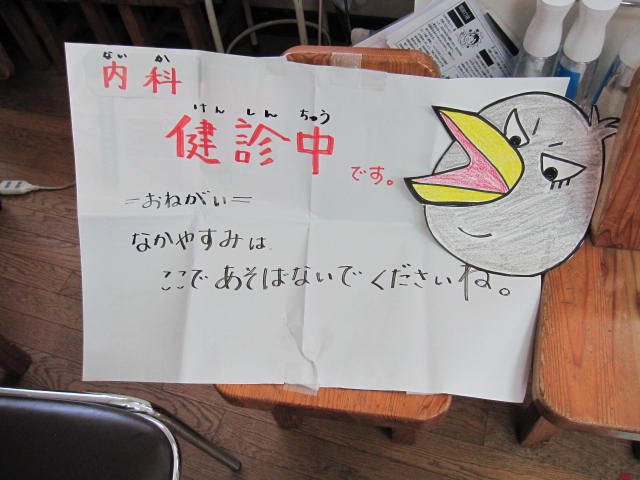 ないか
内科
けんしんちゅう
健診中
です。
=おねがい=
なかやすみは
ここであそばないでくださいね。